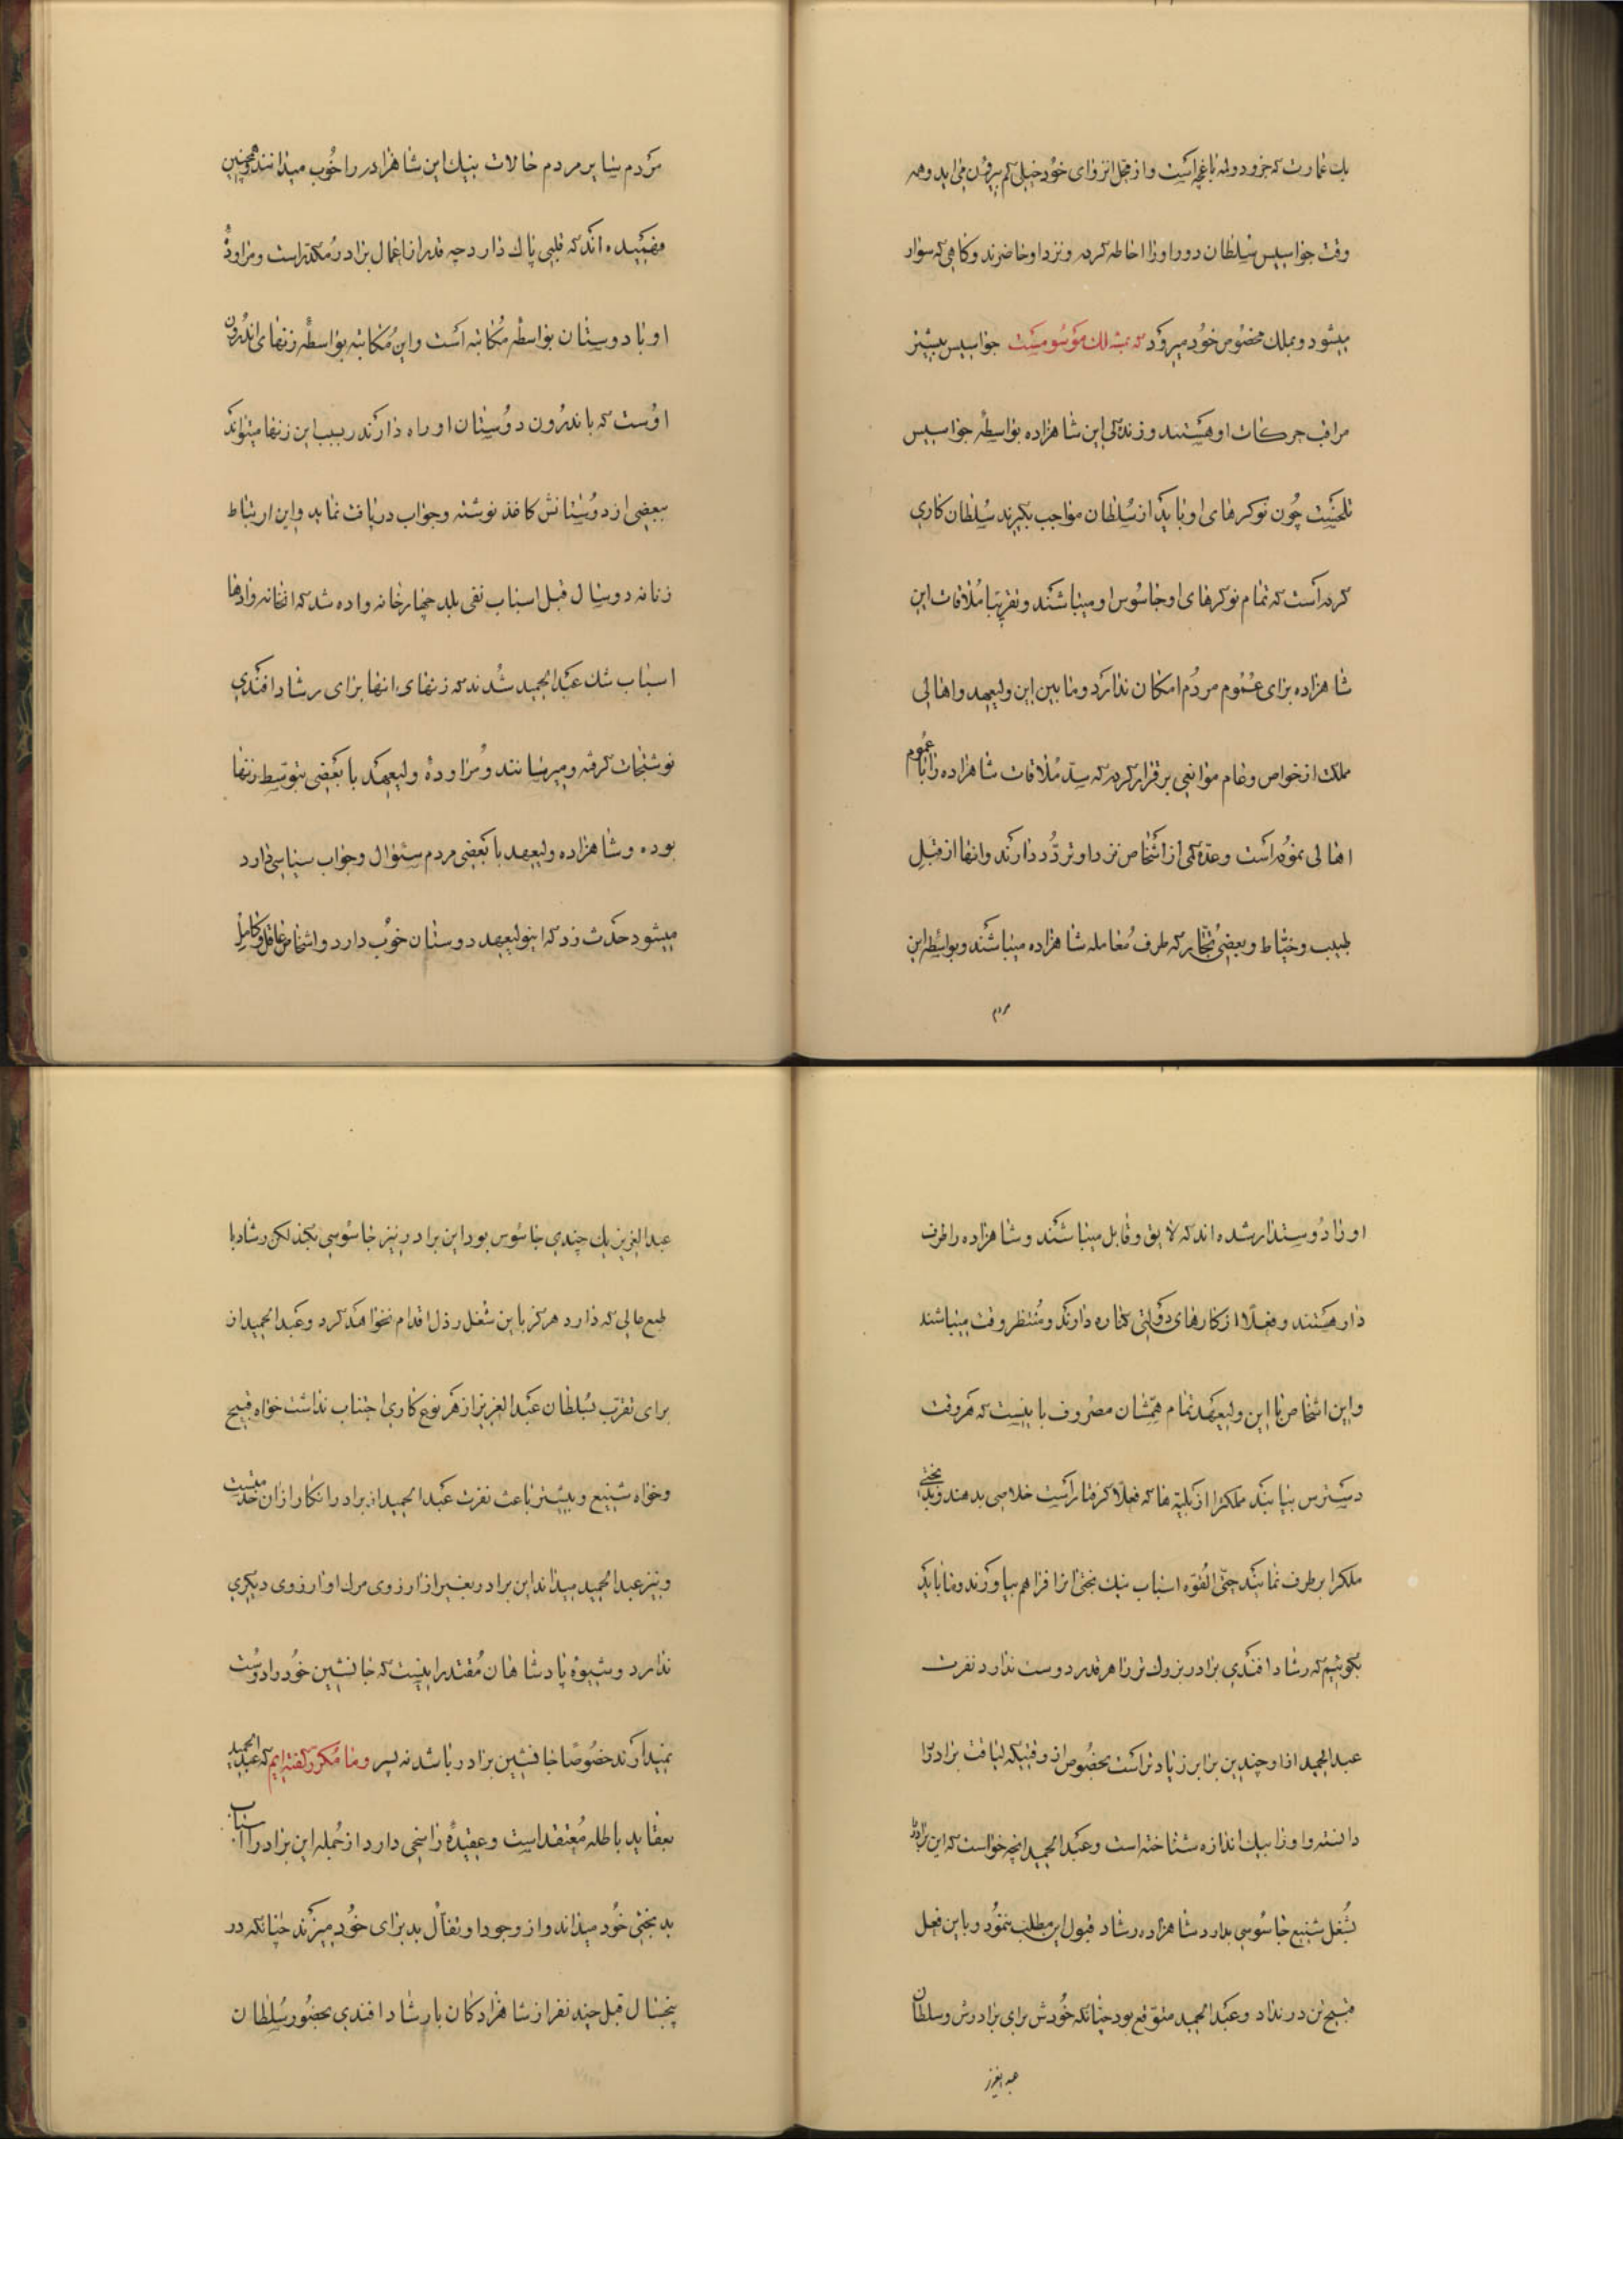 یک عمارت که جزو دولمه باغچه است و از محل انزوای خود خیلی کم بیرون می‌اید و همه
وقت جواسیس سلطان دور او را احاطه کرده و نزد او حاضرند و گاهی که سوار
میشود و بملک مخصوص خود میرود که بمسلک موسومست جواسیس بیشتر
مراقب حرکات او هستند و زندگی این شاهزاده بواسطه جواسیس
تلخست چون نوکرهای او باید از سلطان مواجب بگیرند سلطان کاری
کرده است که تمام نوکرهای او جاسوس او میباشند و تقریبا ملاقات این
شاهزاده برای عموم مردم امکان ندارد و مابین این ولیعهد و اهالی
مملکت از خواص و عام موانعی برقرار کرده که سد ملاقات شاهزاده را با عموم
اهالی نموده است و عده کمی از اشخاص نزد او تردد دارند و انها از قبل
طبیب و خیاط و بعضی تجار که طرف معامله شاهزاده میباشند و بواسطه این
مردم
مردم سایر مردم حالات نیک این شاهزاده را خوب میدانند و همچنین
فهمیده اند که قلبی پاک دارد چه قدر از اعمال برادر مکدر است و مراوده
او با دوستان بواسطه مکاتبه است و این مکاتبه بواسطه زنهای اندرون
اوست که باندرون دوستان او راه دارند بسبب این زنها میتواند
ببعضی از دوستانش کاغذ نوشته و جواب دریافت نماید و این ارتباط
زنانه دو سال قبل اسباب نفی بلد چهار خانه واده شد که ان خانه وادها
اسباب شک عبدالحمید شدند که زنهای انها برای رشاد افندی
نوشتجات گرفته و میرسانند و مراودهٔ ولیعهد با بعضی بتوسط زنها
بوده و شاهزاده ولیعهد با بعضی مردم سئوال و جواب سیاسی دارد
میشود حدث زد که این ولیعهد دوستان خوب دارد و اشخاص عاقل و کامل
او را دوستدار شده اند که لایق و قابل میباشند و شاهزاده را طرف
دار هستند و فعلا از کارهای دولتی کناره دارند و منتظر وقت میباشند
و این اشخاص با این ولیعهد تمام همشان مصروف باینست که هر وقت
دسترس بیابند مملکترا از بلیه ها که فعلا گرفتار است خلاصی بدهند و بدبختی
ملکرا برطرف نمایند حتی القوه اسباب نیک بختی انرا فراهم بیاورند و ما باید
بگوئیم که رشاد افندی برادر بزرک تر را هر قدر دوست ندارد نفرت
عبدالحمید از او چندین برابر زیاد تر است بخصوص از وقتیکه لیاقت برادر را
دانسته و او را بیک اندازه شناخته است و عبدالحمید انچه خواست که این برادر را
بشغل شنیع جاسوسی بدارد شاهزاده رشاد قبول این مطلب ننمود و باین فعل
قبیح تن در نداد و عبدالحمید متوقع بود چنانکه خودش برای برادرش و سلطان
عبدالعزیز
عبدالعزیز یک چندی جاسوس بود این برادر نیز جاسوسی بکند لکن رشاد با
طبع عالی که دارد هرگز باین شغل رذل اقدام نخواهد کرد و عبدالحمید از
برای تقرب بسلطان عبدالعزیز از هر نوع کاری اجتناب نداشت خواه قبیح
و خواه شنیع و بیشتر باعث نفرت عبدالحمید از برادر انکار از ان خدمتست
و نیز عبدالحمید میداند این برادر بغیر از ارزوی مرک او ارزوی دیگری
ندارد و شیوهٔ پادشاهان مقتدر اینست که جانشین خود را دوست
نمیدارند خصوصا جانشین برادر باشد نه پسر و ما مکرر گفته ایم که عبدالحمید
بعقاید باطله معتقد است و عقیدهٔ راسخی دارد از جمله این برادر را اسباب
بدبختی خود میداند و از وجود او تفأل بد برای خود میزند چنانکه در
پنجسال قبل چند نفر از شاهزادگان با رشاد افندی بحضور سلطان